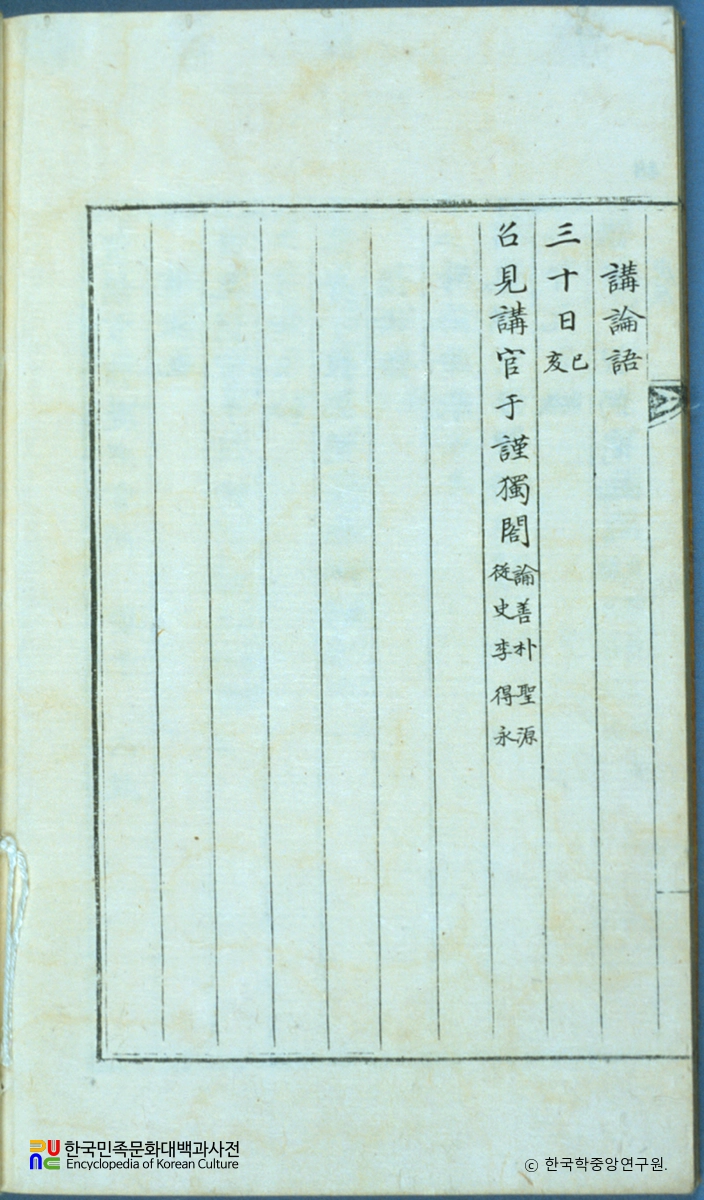 講論語
三十日己亥
召見講官于謹獨閤諭善朴聖源從史李得永
한국민족문화대백과사전
Encyclopedia of Korean Culture
© 한국학중앙연구원.